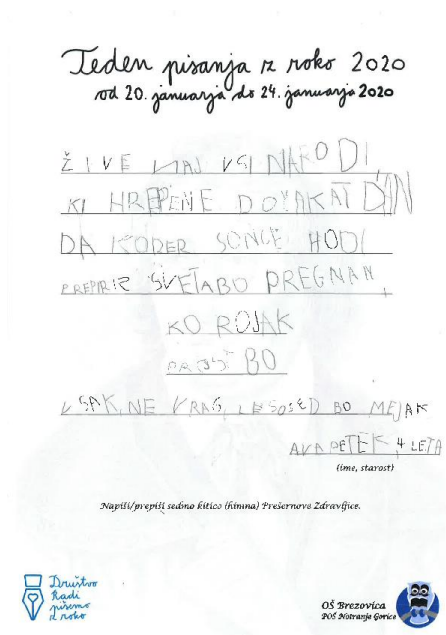 Teden pisanja z roko 2020
od 20. januarja do 24. januarja 2020
ŽIVE NAJ VSI NARODI,
KI HREPENE DOČAKAT DAN
DA KODER SONCE HODI
PREPIR IZ SVETA BO PREGNAN,
KO ROJAK
PROST BO
VSAK, NE VRAG, LE SOSED BO MEJAK
AVA PETEK, 4 LETA
(ime, starost)
Napiši/prepiši sedmo kitico (himna) Prešernove Zdravljice.
Društvo
Radi
pišemo
z roko
OŠ Brezovica
POŠ Notranje Gorice